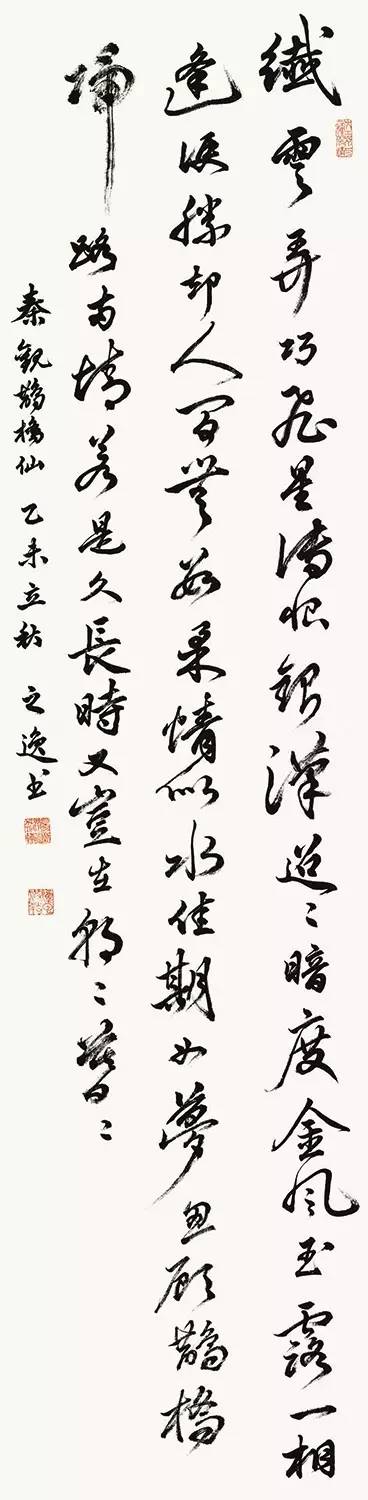 纖雲弄巧飛星傳恨銀漢迢〻暗度金風玉露一相
逢便勝却人間無數柔情似水佳期如夢忍顧鵲橋
歸路兩情若是久長時又豈在朝〻暮〻
秦觀鵲橋仙 乙未立秋 之逸書